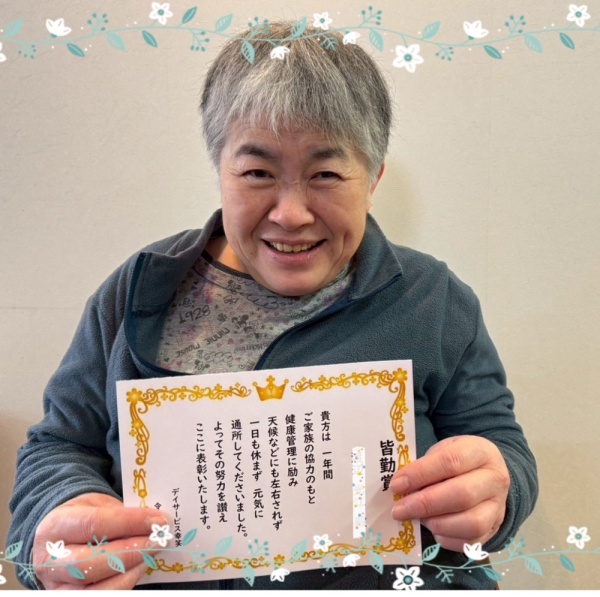 皆勤賞
貴方は 一年間
ご家族の協力のもと
健康管理に励み
天候などにも左右されず
一日も休まず 元気に
通所してくださいました。
よってその努力を讃え
ここに表彰いたします。
令
デイサービス幸